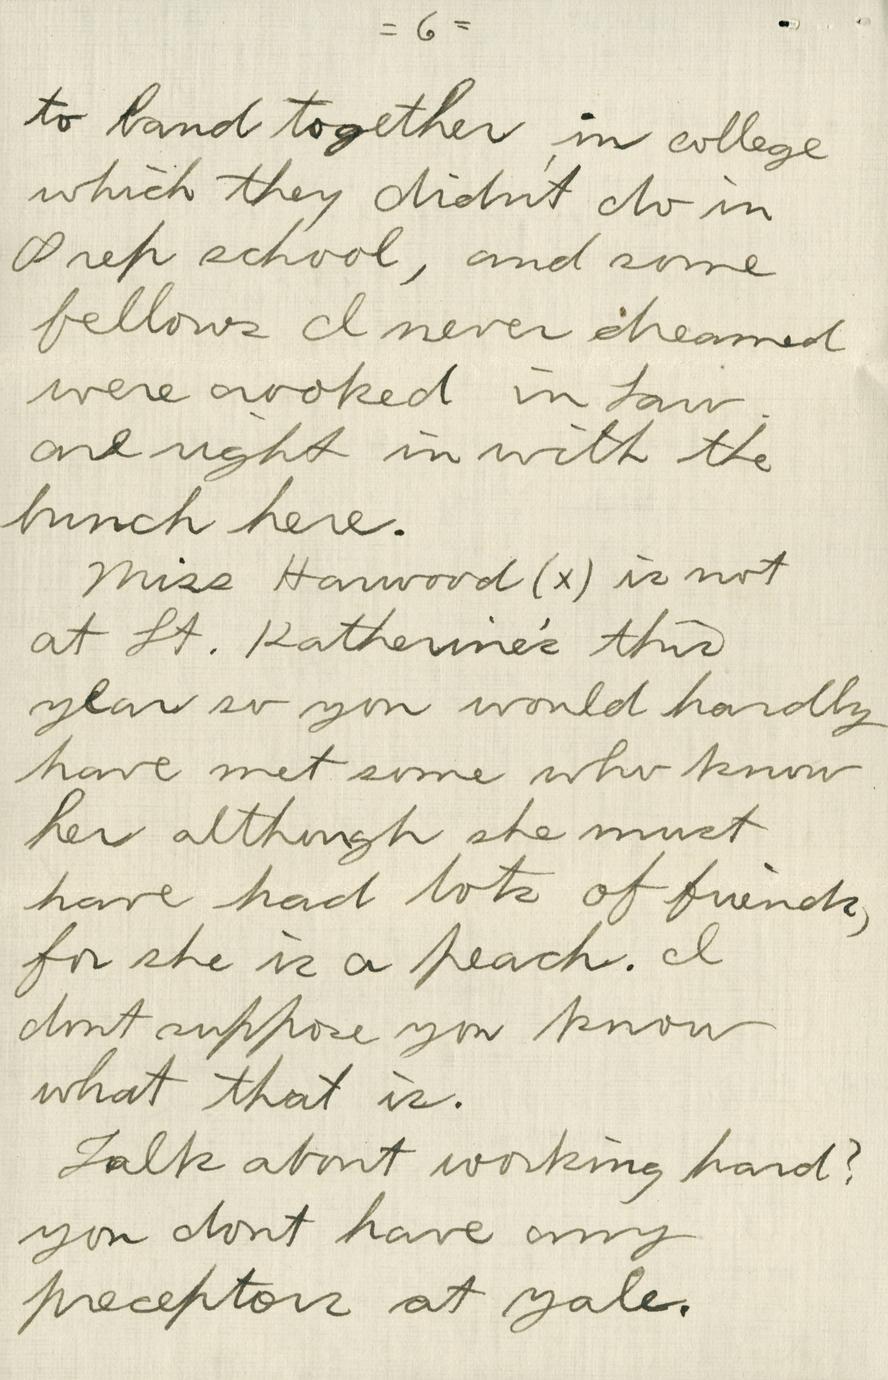 = 6 =
to band together, in college
which they didn't do in
Prep school, and some
fellows I never dreamed
were crooked in Law.
are right in with the
bunch here.
Miss Harwood (x) is not
at St. Katherine's this
year so you would hardly
have met some who know
her although she must
have had lots of friends,
for she is a peach. I
dont suppose you know
what that is.
Talk about working hard?
you dont have any
preceptors at Yale.